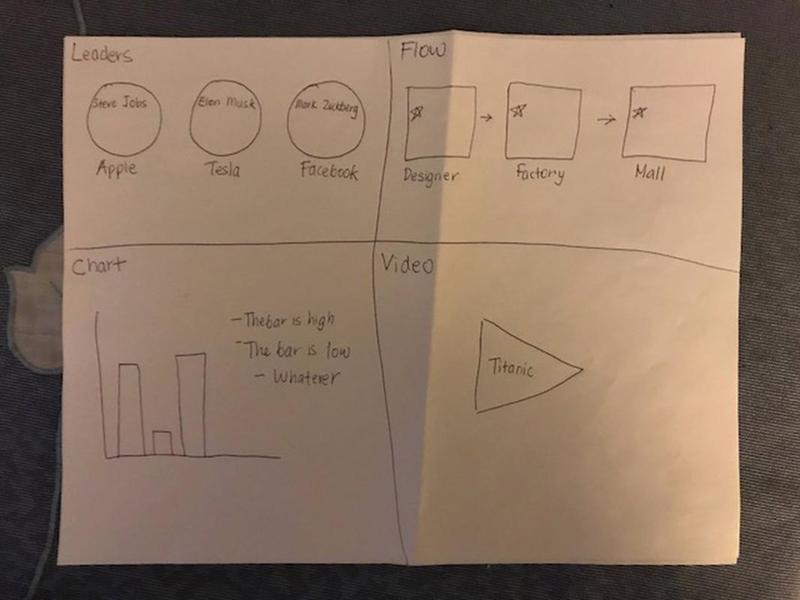 Leaders
Steve Jobs
Elon Musk
Mark Zuckberg
Apple
Tesla
Facebook
Flow
Designer
Factory
Mall
Chart
- The bar is high
- The bar is low
- Whaterer
Video
Titanic